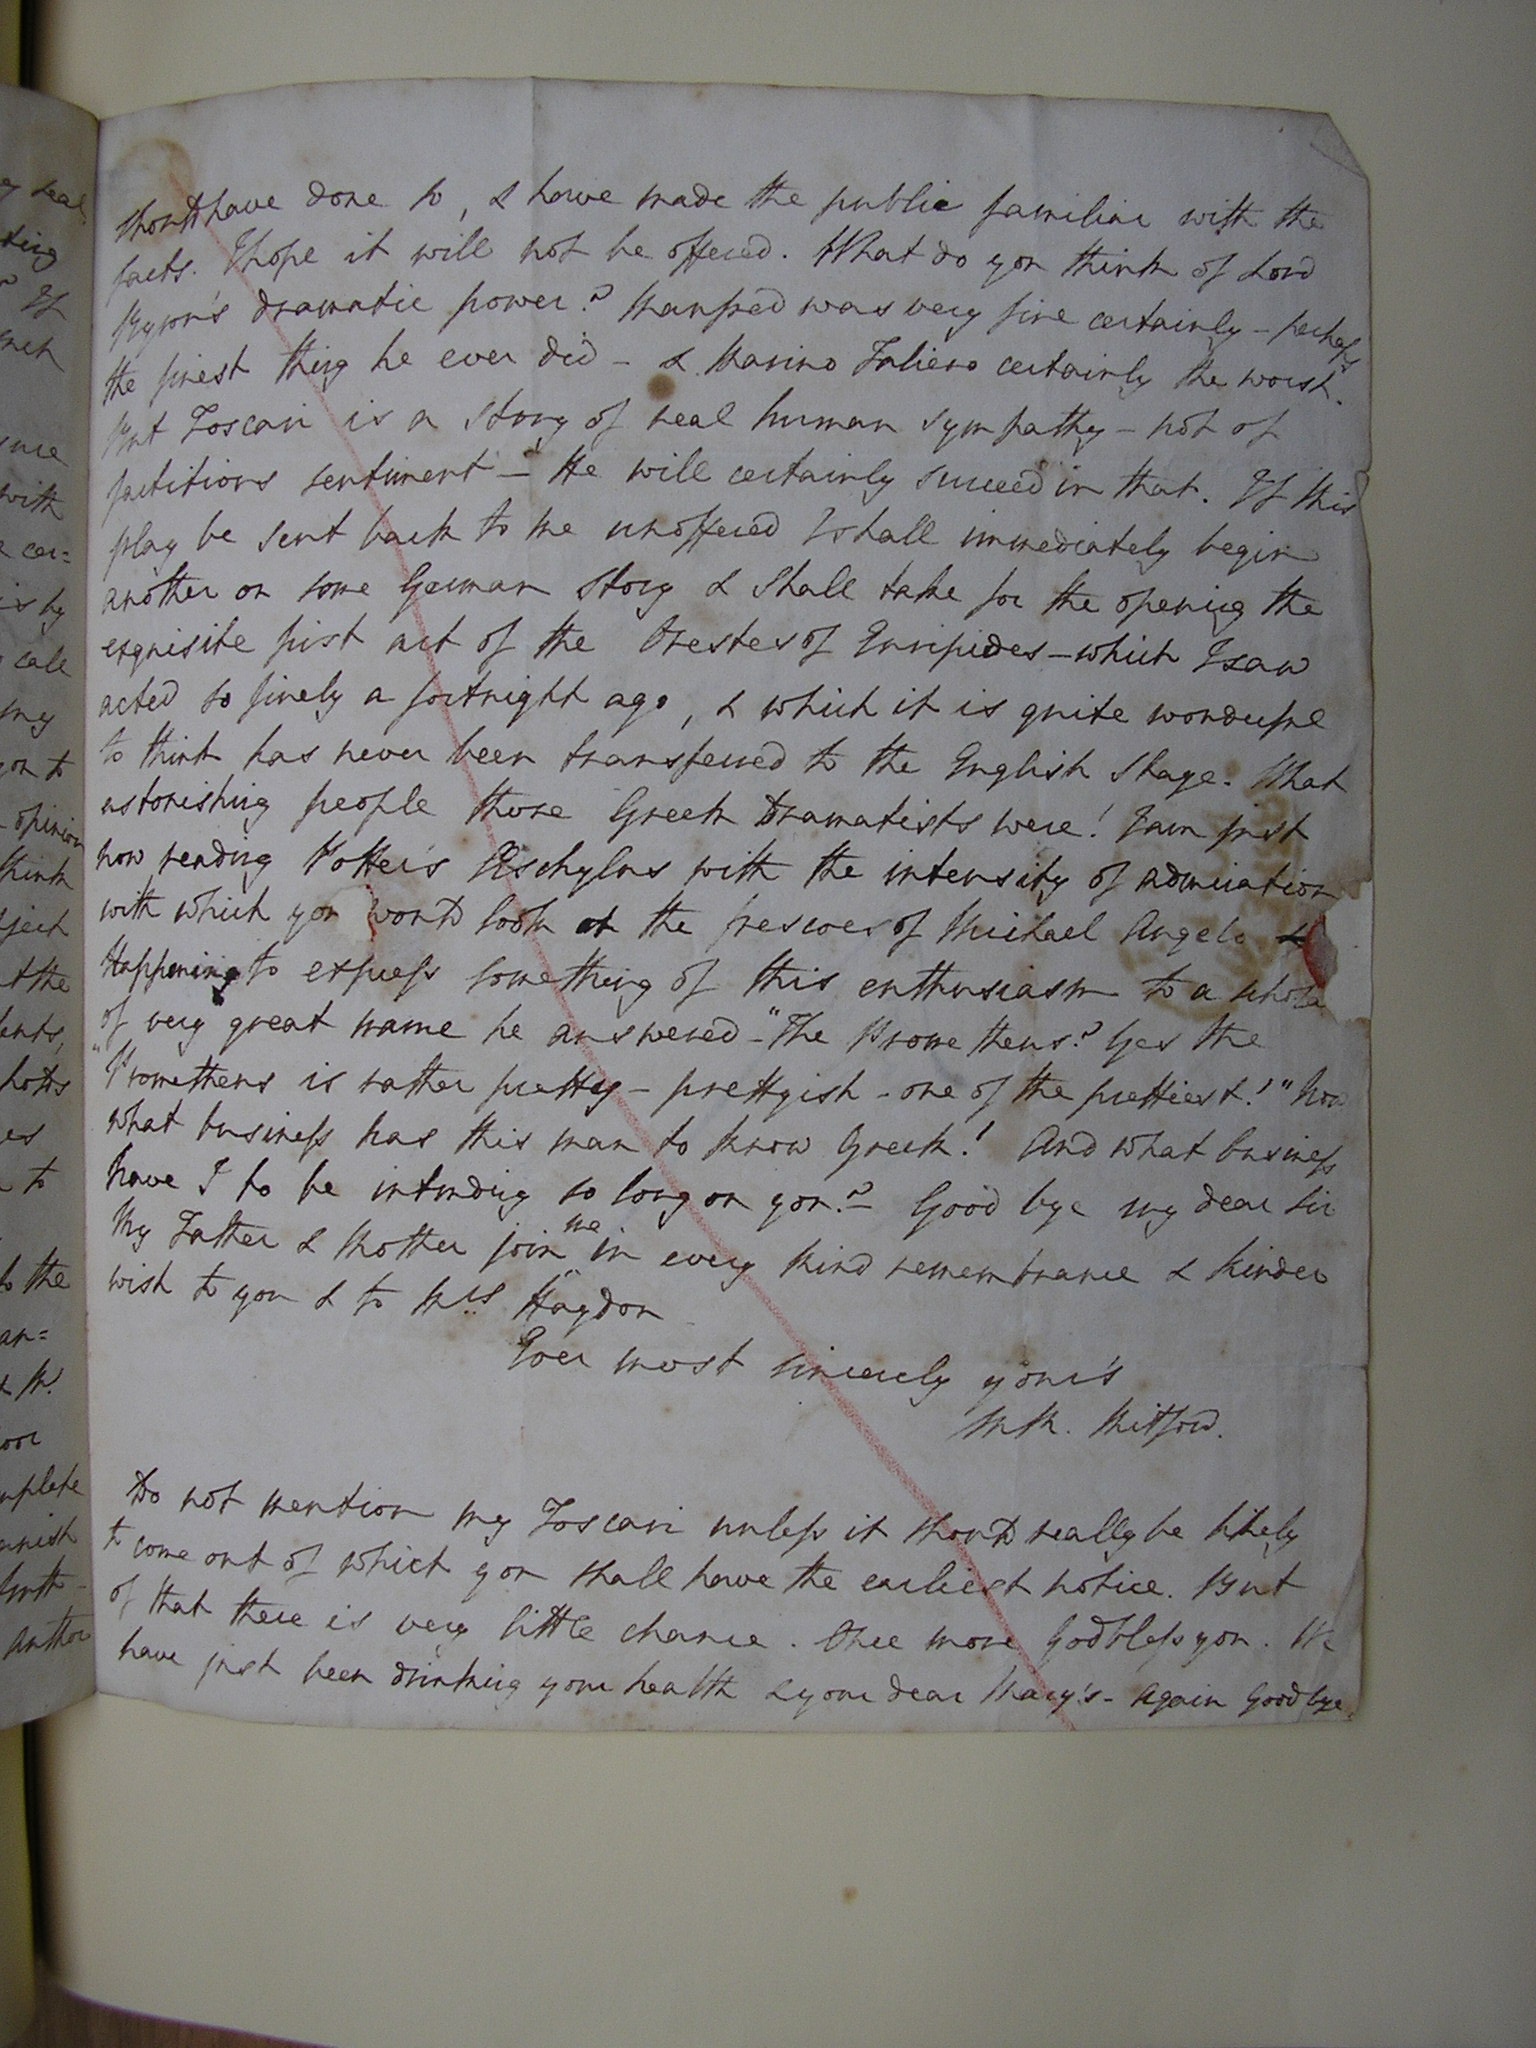 should have done so, & have made the public familiar with the
facts. I hope it will not be offered. What do you think of Lord
Byron's dramatic power? Manfred was very fine certainly - perhaps
the finest thing he ever did - & Marino Faliero certainly the worst.
But Foscari is a story of real human sympathy - not of
factitious sentiment - He will certainly succeed in that. If this
play be sent back to me unoffered I shall immediately begin
another on some German story & shall take for the opening the
exquisite first act of the Orestes of Euripides - which I saw
acted so finely a fortnight ago, & which it is quite wonderful
to think has never been transferred to the English Stage. What
astonishing people those Greek Dramatists were! I am just
now reading Potter's Æschylus with the intensity of admiration
with which you would look at the frescoes of Michael Angelo &
Happening to express something of this enthusiasm to a schola
of very great name he answered - "The Prometheus? Yes the
"Prometheus is rather pretty - prettyish - one of the prettiest!" Now
what business has this man to know Greek! And what business
have I to be intruding so long on you? - Good bye my dear Sir
My Father & Mother join me in every kind remembrance & kinder
wish to you & to Mrs. Haydon
Ever most sincerely your's
M.R. Mitford.
Do not mention my Foscari unless it should really be likely
to come out of which you shall have the earliest notice. But
of that there is very little chance. Once more God bless you. We
have just been drinking your health & your dear Mary's - Again Good bye.